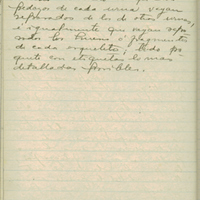 pedazos de cada urna vayan
separados de los de otras urnas,
é igualmente que vayan sepa
rados los huesos ó fragmentos
de cada esqueleto; todo pa
quete con etiquetas lo mas
detalladas posibles.